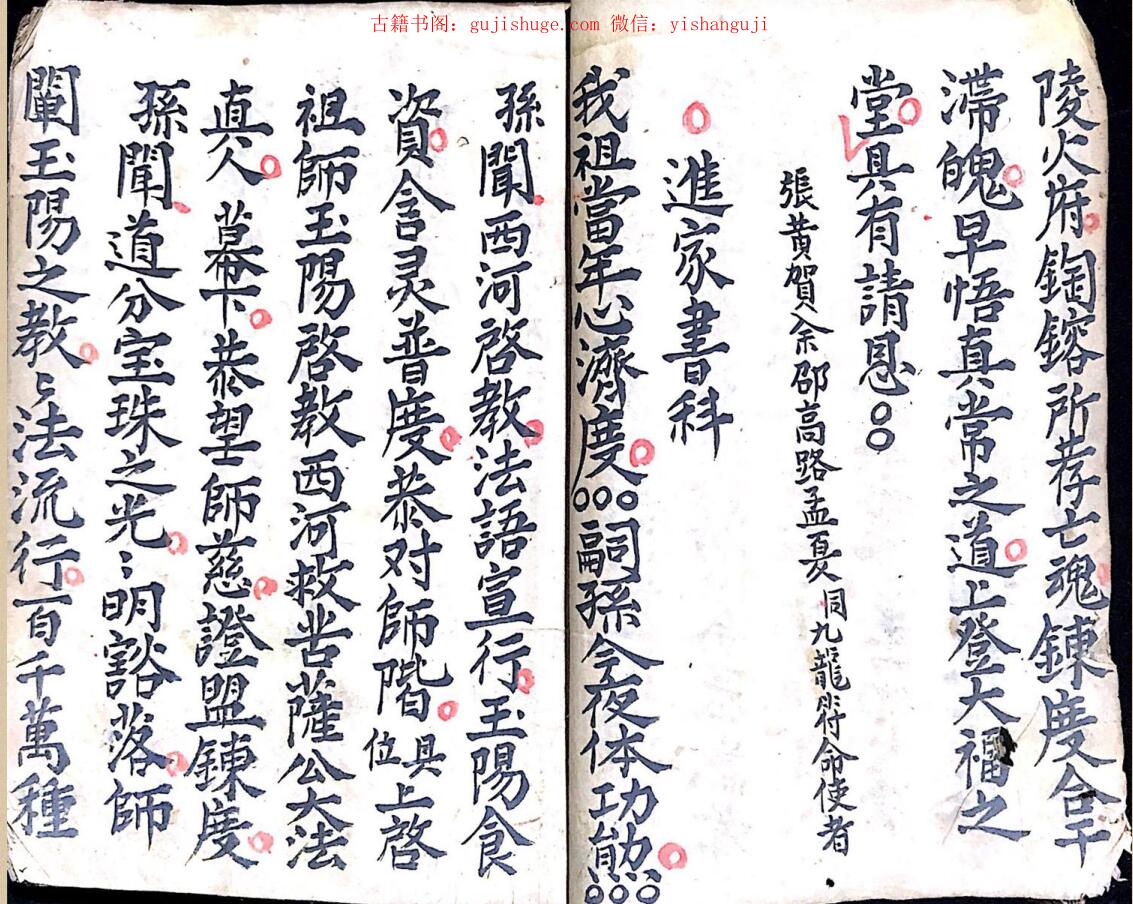 古籍书阁：gujishuge.com 微信：yishanguji
陵火府。鎔所荐亡魂。鍊度合干
滯魄。早悟真常之道。上登大福之
堂。具有請恩〇〇
張黄賀余邵高路孟夏同九龍符命使者
〇進家書科
我祖當年心濟度。〇〇〇嗣孫今夜体功勲。〇〇〇
孫聞西河啓教。法語宣行。玉陽食
資。含灵普度。恭对師階。具位上啓
祖師玉陽啓教西河救苦薩公大法
真人。幕下。恭望師慈。證盟鍊度。
孫聞道分宝珠之光。〻明豁落。師
闡玉陽之教。〻法流行。一百千萬種